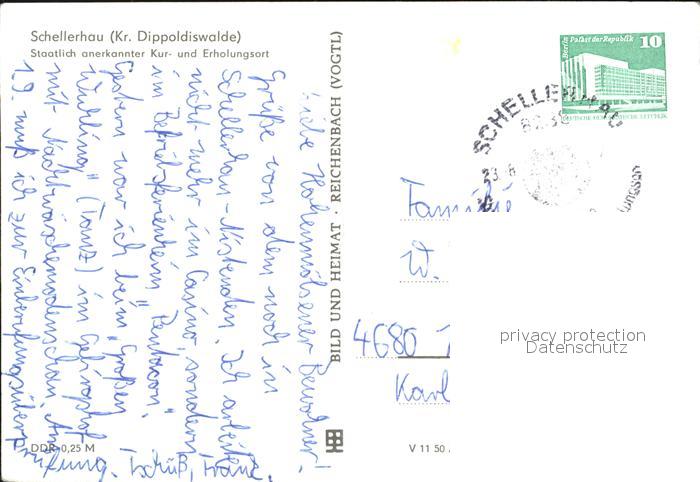 Schellerhau (Kr. Dippoldiswalde)
Staatlich anerkannter Kur- und Erholungsort
Liebe Hohenmölsener Bewohner!
Grüße von dem noch im
Schellerhau-Nistenden. Ich arbeite
nicht mehr im Casino, sondern
im Betriebsferienheim "Rentasan".
Gestern war ich beim "Großen
(Tanz) im Gehrighof
mit Nachtwäschemodenschau. Am
19. muß ich zur Einberufungsüberprüfung.
Tschüß, Franz.
DDR 0,25 M
BILD UND HEIMAT · REICHENBACH (VOGTL)
V 11 50
Berlin Palast der Republik 10
DEUTSCHE DEMOKRATISCHE REPUBLIK
SCHELLERHAU
Familie
W.
4680
Karl
privacy protection
Datenschutz